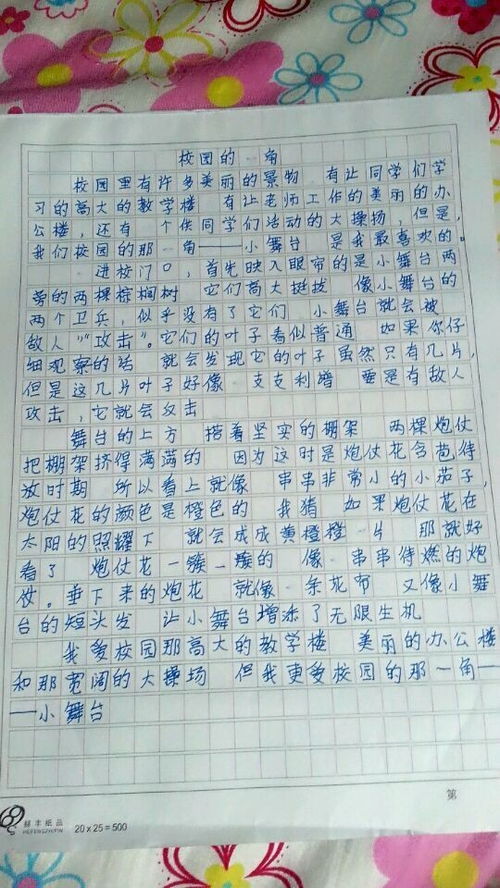 校园的一角
校园里有许多美丽的景物 有让同学们学
习的高大的教学楼 有让老师工作的美丽的办
公楼，还有 个供同学们活动的大操扬，但是，
我们校园的那一角——小舞台 是我最喜欢的。
进校门口，首先映入眼帘的是小舞台两
旁的两棵棕榈树 它们高大挺拔 像小舞台的
两个卫兵，似乎没有了它们 小舞台就会被
敌人“攻击”。它们的叶子看似普通 如果你仔
细观察的话 就会发现它的叶子虽然只有几片，
但是这几片叶子好像 支支利 是有敌人
攻击，它就会反击
舞台的上方 搭着坚实的棚架 两棵炮仗
把棚架挤得满满的 因为这时是炮仗花含苞待
放时期 所以看上就像 串串非常小的小茄子，
炮仗花的颜色是橙色的 我猜 如果炮仗花在
太阳的照耀下 就会成成黄橙橙一片 那就好
看了 炮仗花一簇一簇的 像一串串待燃的炮
仗。垂下来的炮花 就像一条花布 又像小舞
台的短头发 让小舞台增添了无限生机
我爱校园那高大的教学楼 美丽的办公楼
和那宽阔的大操场 但我更爱校园的那一角—
—小舞台
第
赫丰纸品
HEFENGZHIPIN
20×25=500